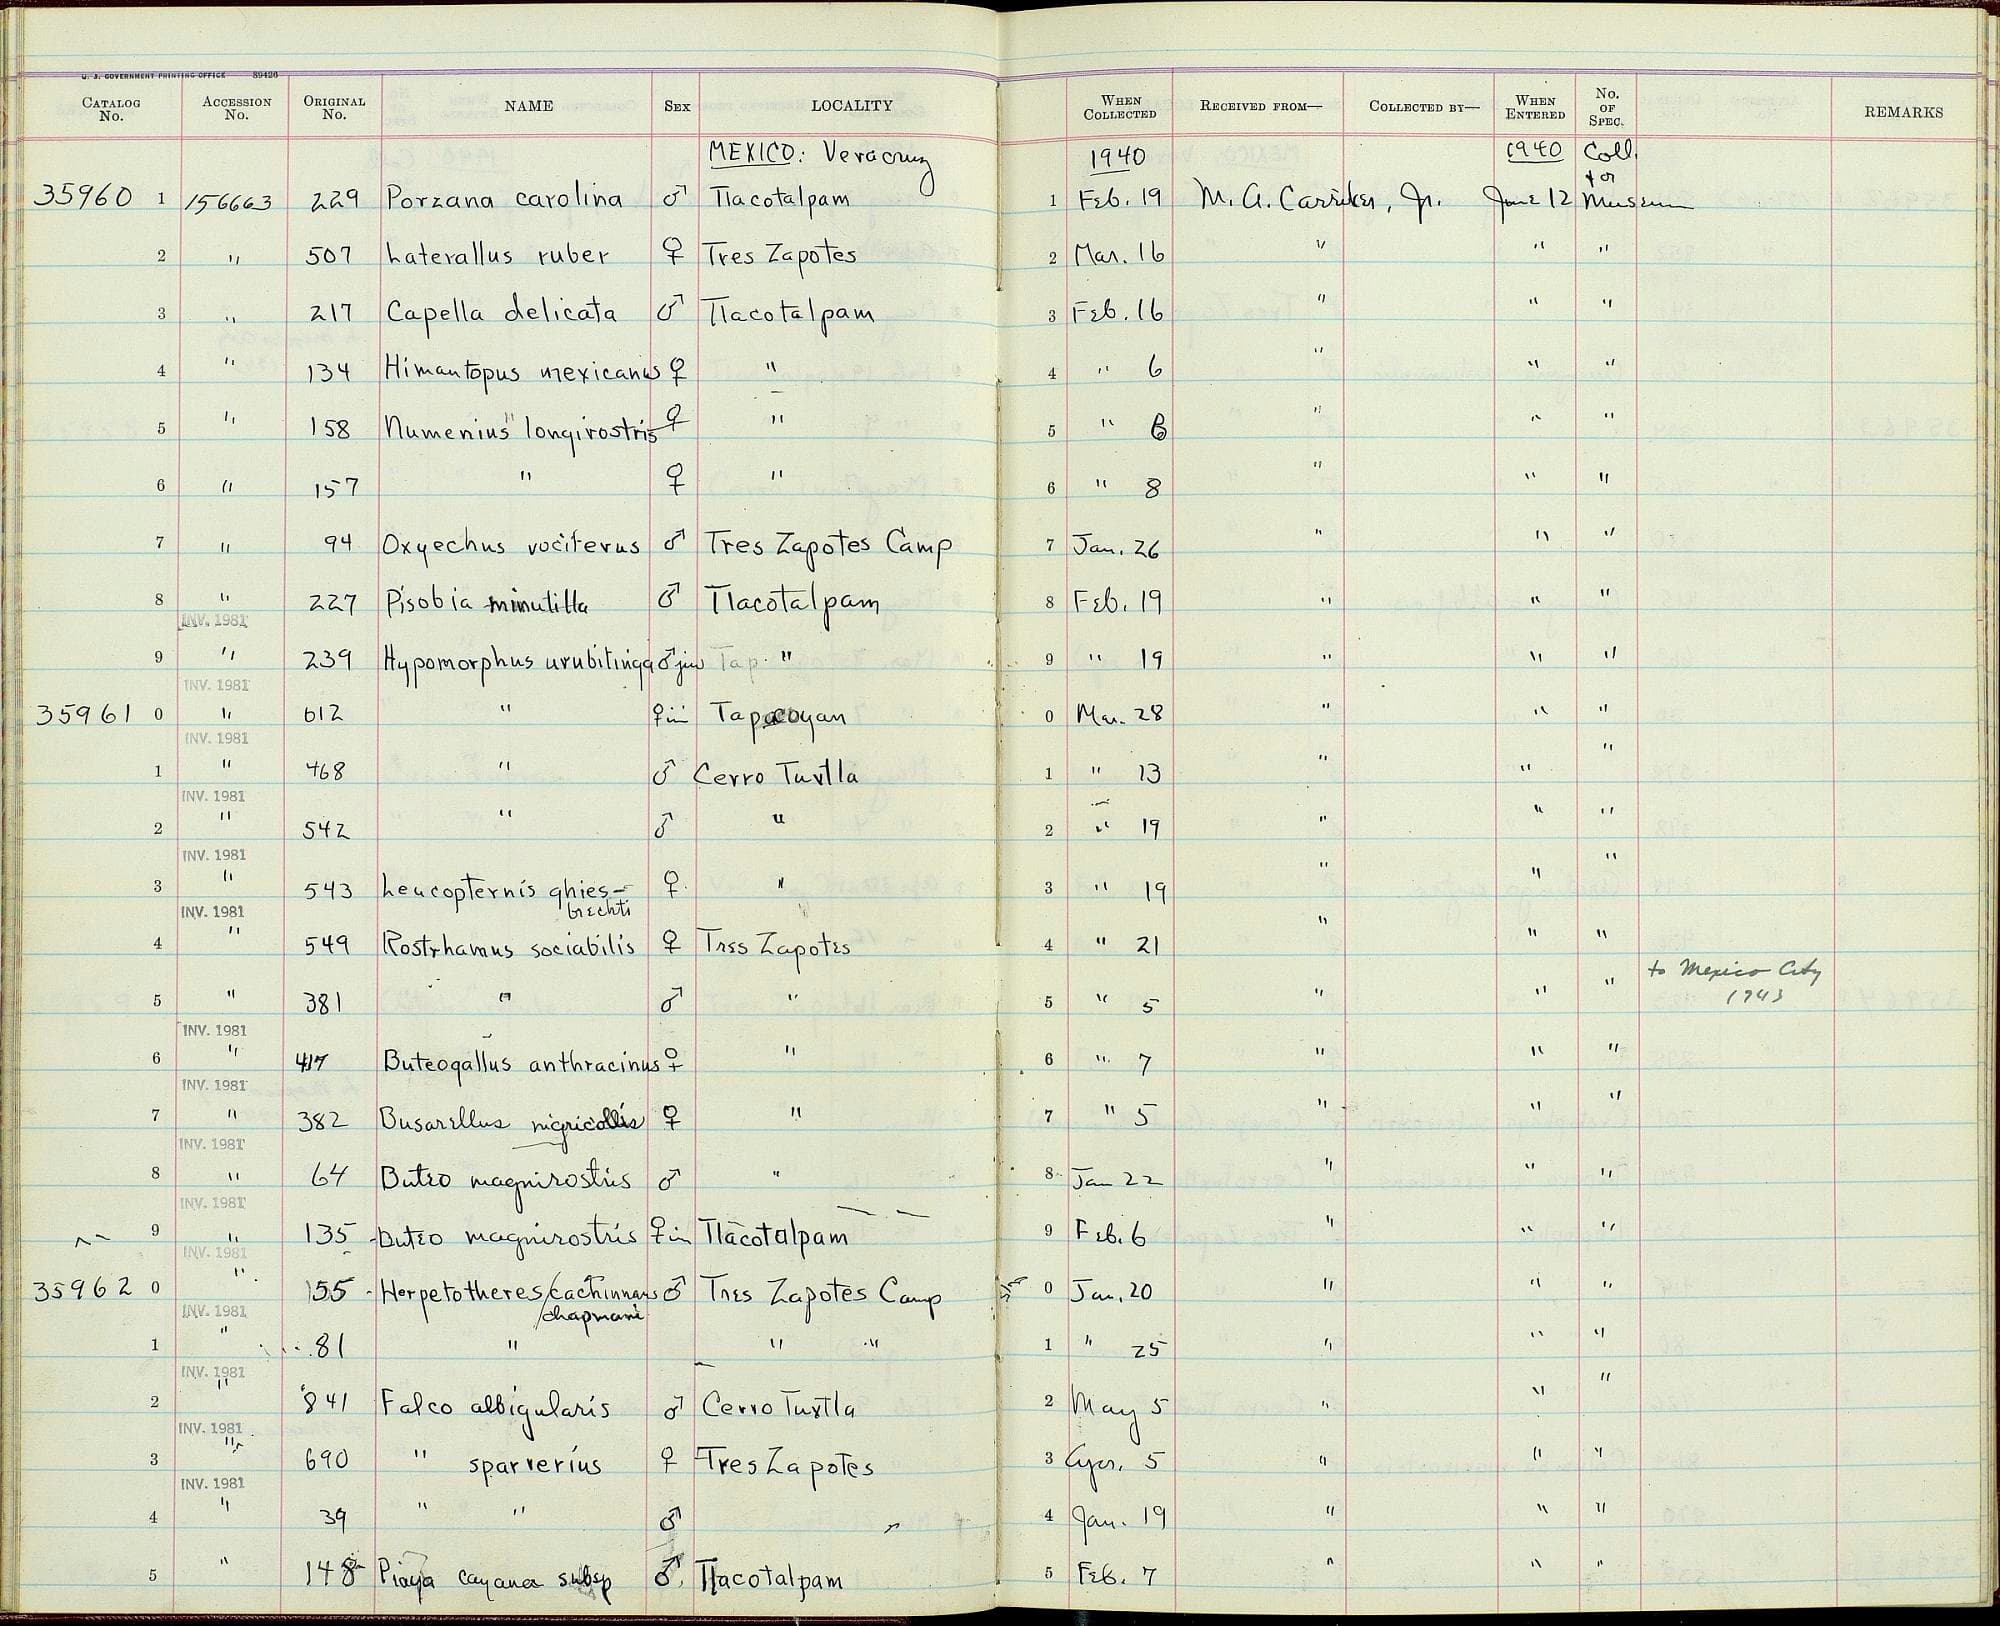 U. S. GOVERNMENT PRINTING OFFICE 89426
CATALOG No. ACCESSION No. ORIGINAL No. NAME SEX LOCALITY WHEN COLLECTED RECEIVED FROM— COLLECTED BY— WHEN ENTERED No. OF SPEC. REMARKS
MEXICO: Veracruz 1940 1940 Coll.
35960 1 156663 229 Porzana carolina ♂ Tlacotalpam 1 Feb. 19 M. A. Carriker, Jr. June 12 Museum
2 " 507 Laterallus ruber ♀ Tres Zapotes 2 Mar. 16 " " "
3 " 217 Capella delicata ♂ Tlacotalpam 3 Feb. 16 " " "
4 " 134 Himantopus mexicanus ♀ " 4 " 6 " " "
5 " 158 Numenius longirostris ♀ " 5 " 8 " " "
6 " 157 " ♀ " 6 " 8 " " "
7 " 94 Oxyechus vociferus ♂ Tres Zapotes Camp 7 Jan. 26 " " "
8 " 227 Pisobia minutilla ♂ Tlacotalpam 8 Feb. 19 " " "
INV. 1981
9 " 239 Hypomorphus urubitinga ♂ juv Tap. " 9 " 19 " " "
INV. 1981
35961 0 " 612 " ♀ im Tapacoyan 0 Mar. 28 " " "
INV. 1981
1 " 468 " ♂ Cerro Tuxtla 1 " 13 " " "
INV. 1981
2 " 542 " ♂ " 2 " 19 " " "
INV. 1981
3 " 543 Leucopternis ghies- ♀ " 3 " 19 " " "
INV. 1981 brechti
4 " 549 Rostrhamus sociabilis ♀ Tres Zapotes 4 " 21 " " "
to Mexico City
5 " 381 " ♂ " 5 " 5 " " " 1943
INV. 1981
6 " 417 Buteogallus anthracinus ♀ " 6 " 7 " " "
INV. 1981
7 " 382 Busarellus nigricollis ♀ " 7 " 5 " " "
INV. 1981
8 " 64 Buteo magnirostris ♂ " 8 Jan 22 " " "
INV. 1981
9 " 135 Buteo magnirostris ♀ im Tlacotalpam 9 Feb. 6 " " "
INV. 1981
35962 0 " 155 Herpetotheres cachinnans ♂ Tres Zapotes Camp 0 Jan. 20 " " "
INV. 1981 chapmani
1 " 81 " " " 1 " 25 " " "
INV. 1981
2 " 841 Falco albigularis ♂ Cerro Tuxtla 2 May 5 " " "
INV. 1981
3 " 690 " sparverius ♀ Tres Zapotes 3 Apr. 5 " " "
INV. 1981
4 " 39 " " ♂ " 4 Jan. 19 " " "
5 " 148 Piaya cayana subsp ♂ Tlacotalpam 5 Feb. 7 " " "